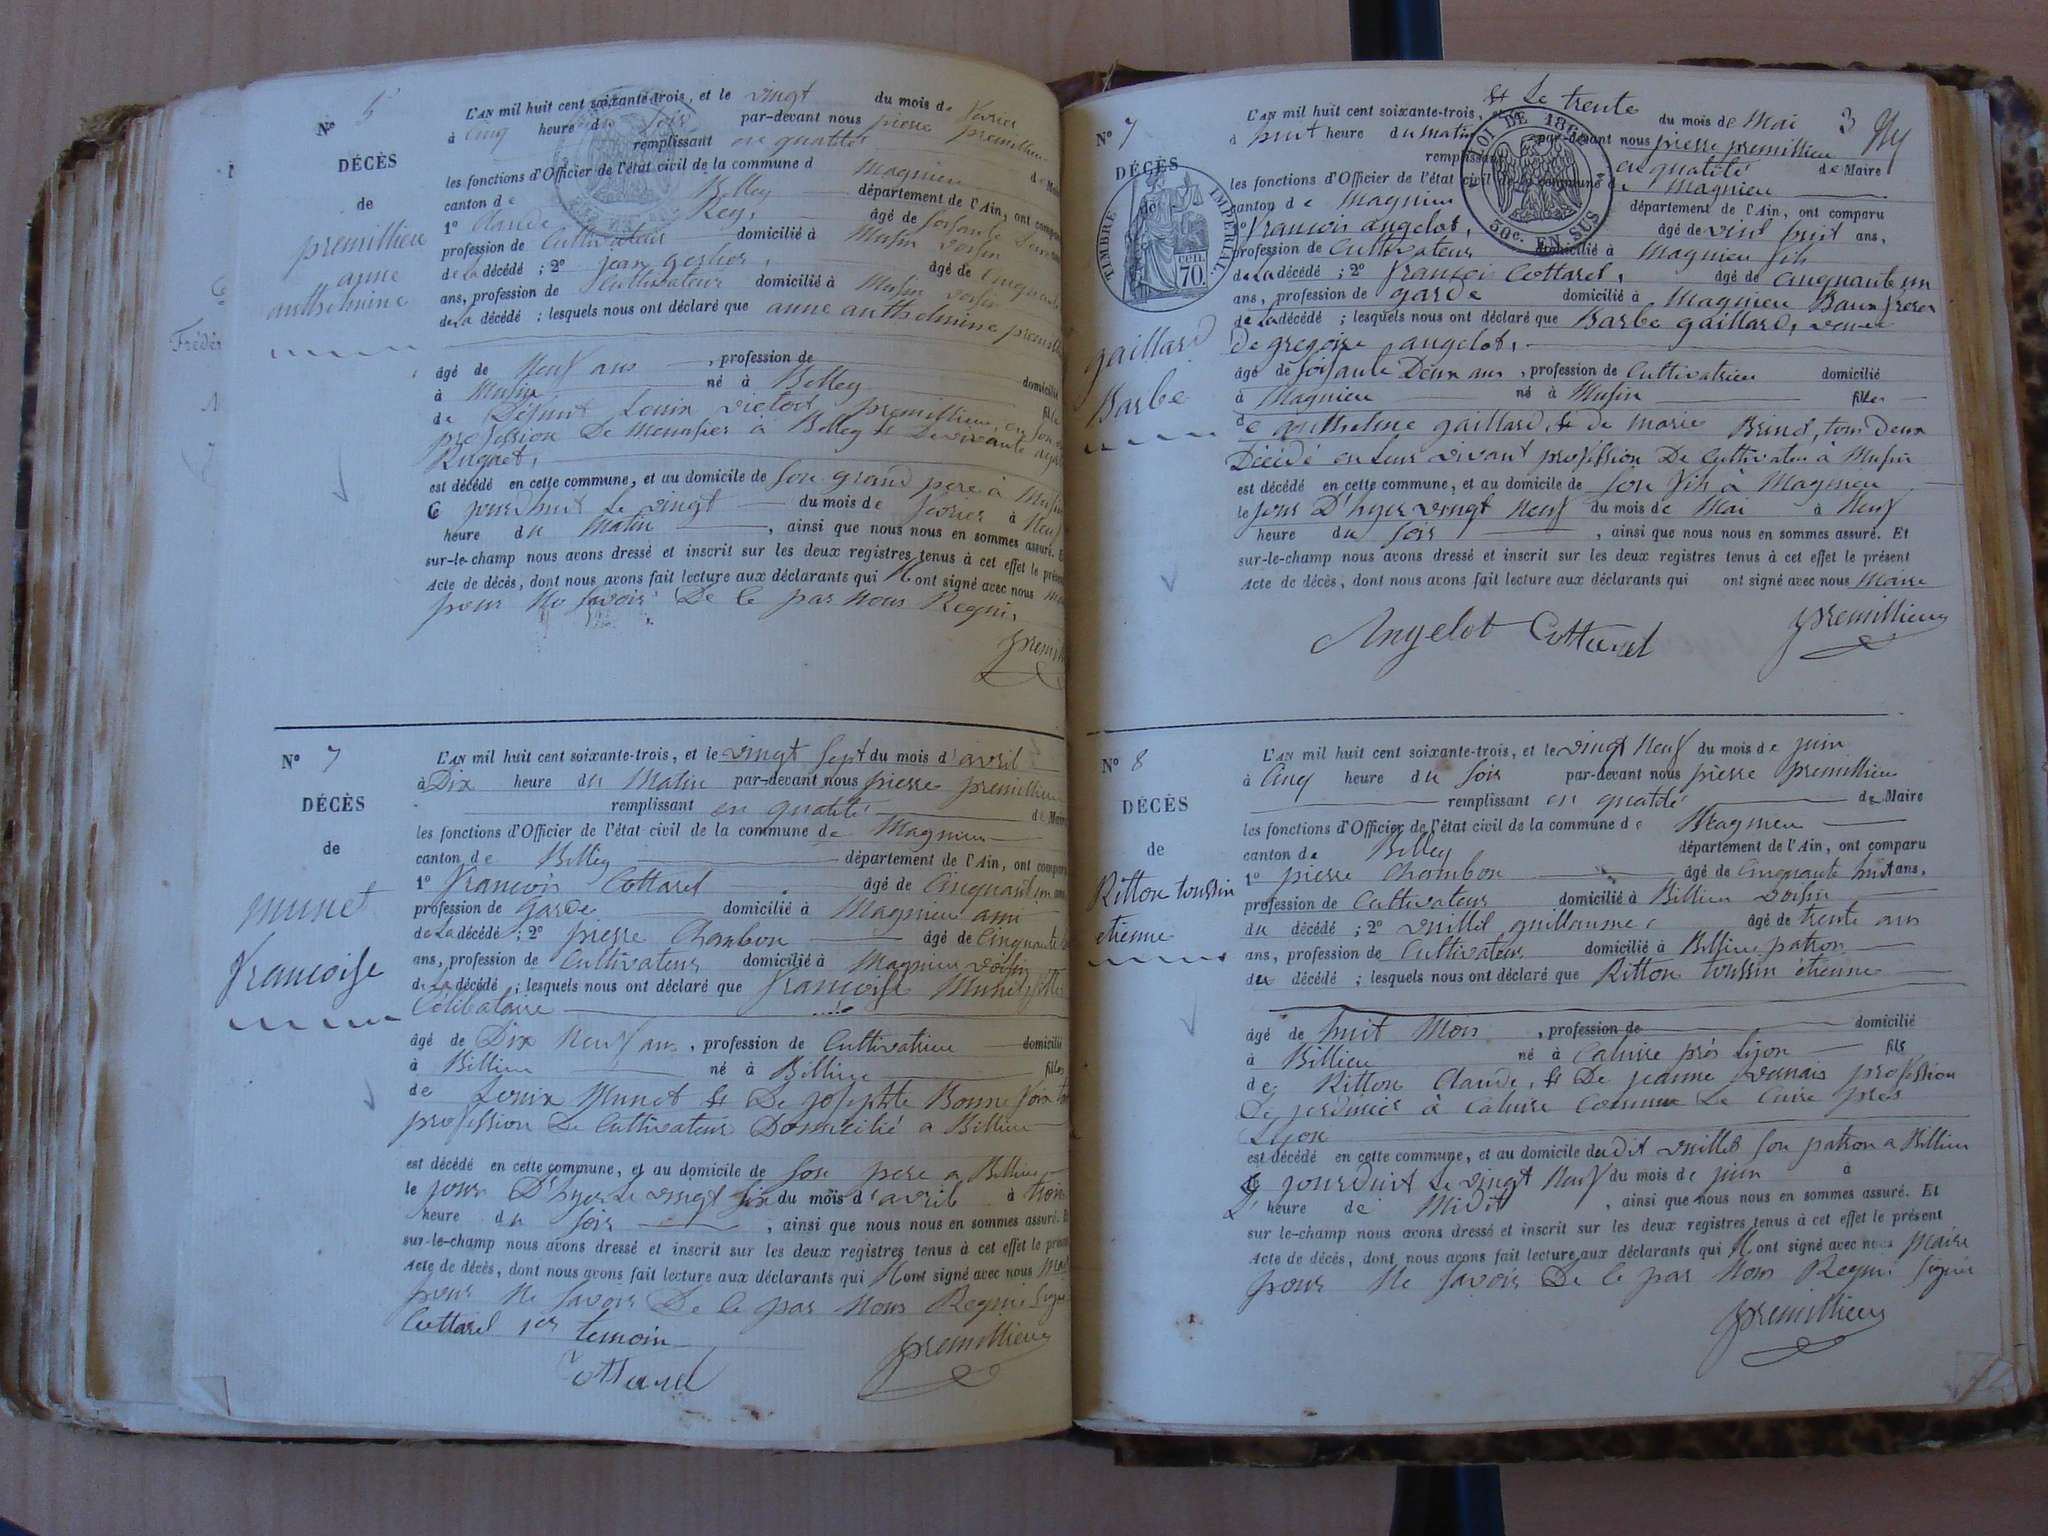 N° 5
DÉCÈS
de
premillieu
anne
anthelmine
L'AN mil huit cent soixante-trois, et le vingt du mois de fevrier
à Cinq heure du soir par-devant nous pierre premillieu
remplissant en qualité de Maire
les fonctions d'Officier de l'état civil de la commune d Magnieu
canton de Belley département de l'Ain, ont comparu
1° Claude Rey, âgé de soisante Deux
profession de Cultivateur domicilié à Musin voisin
de La décédé ; 2° jean gerlier, âgé de Cinquante
ans, profession de Cultivateur domicilié à Musin voisin
de La décédé ; lesquels nous ont déclaré que anne anthelmine premillieu
âgé de Neuf ans , profession de
à Musin né à Belley domicilié
de Défunt Louis victor premillieu, en son fille
profession De Meunier à Belley & De vivante
Ruguet,
est décédé en cette commune, et au domicile de son grand pere à Musin
Ce jourd'huit Le vingt du mois de fevrier à Neuf
heure du Matin , ainsi que nous nous en sommes assuré. Et
sur-le-champ nous avons dressé et inscrit sur les deux registres tenus à cet effet le présent
Acte de décès, dont nous avons fait lecture aux déclarants qui N ont signé avec nous
pour Ne savoir De Ce par Nous Requi,
premill
N° 7
DÉCÈS
de
munet
francoise
L'AN mil huit cent soixante-trois, et le vingt sept du mois d'avril
à Dix heure du Matin par-devant nous pierre premillieu
remplissant en qualité de Maire
les fonctions d'Officier de l'état civil de la commune de Magnieu
canton de Belley département de l'Ain, ont comparu
1° francois Cottarel âgé de Cinquant un ans
profession de garde domicilié à Magnieu ami
de La décédé ; 2° pierre Chambon âgé de Cinquante
ans, profession de Cultivateur domicilié à Magnieu voisin
de La décédé ; lesquels nous ont déclaré que francoise Munet, fille
Célibataire
âgé de Dix Neuf ans , profession de Cultivatrice domicilié
à Billieu né à Billieu fille
de Louis Munet & De josephte Bonne
profession De Cultivateur Domicilié a Billieu
est décédé en cette commune, et au domicile de son pere a Billieu
le jour D'hyer Le vingt six du mois d'avril à trois
heure du soir , ainsi que nous nous en sommes assuré. Et
sur-le-champ nous avons dressé et inscrit sur les deux registres tenus à cet effet le présent
Acte de décès, dont nous avons fait lecture aux déclarants qui N ont signé avec nous
pour Ne savoir De Ce par Nous Requis signé
Cottarel 1er temoin
Cottarel premillieu
N° 7
DÉCÈS
de
TIMBRE IMPERIAL
70
gaillard
Barbe
& Le trente
L'AN mil huit cent soixante-trois, du mois de Mai 3
à huit heure du matin par-devant nous pierre premillieu
remplissant en qualité de Maire
les fonctions d'Officier de l'état civil de la commune de Magnieu
LOI DE 1862
50c. EN SUS
canton de Magnieu département de l'Ain, ont comparu
1° francois angelot, âgé de vint huit ans,
profession de Cultivateur domicilié à Magnieu fils
de La décédé ; 2° françoi Cottarel, âgé de Cinquante un
ans, profession de garde domicilié à Magnieu Baux frerer
de La décédé ; lesquels nous ont déclaré que Barbe gaillard, veuve
De gregoire angelot,
âgé de soisante Deux ans , profession de Cultivatrice domicilié
à Magnieu né à Musin fille
de anthelme gaillard, & de Marie Brind, tous deux
Décédé en Leur vivant profession De Cultivateu à Musin
est décédé en cette commune, et au domicile de son fils à Magnieu
le jour D'hyer vingt Neuf du mois de Mai à Neuf
heure du soir , ainsi que nous nous en sommes assuré. Et
sur-le-champ nous avons dressé et inscrit sur les deux registres tenus à cet effet le présent
Acte de décès, dont nous avons fait lecture aux déclarants qui ont signé avec nous Maire
Angelot Cottarel premillieu
N° 8
DÉCÈS
de
Ritton toussin
etienne
L'AN mil huit cent soixante-trois, et le vingt Neuf du mois de juin
à Cinq heure du soir par-devant nous pierre premillieu
remplissant en qualité de Maire
les fonctions d'Officier de l'état civil de la commune de Magnieu
canton de Belley département de l'Ain, ont comparu
1° pierre Chambon âgé de Cinquante huit ans,
profession de Cultivateur domicilié à Billieu voisin
du décédé ; 2° vuillet guillaume âgé de trente ans
ans, profession de Cultivateur domicilié à Billieu patron
du décédé ; lesquels nous ont déclaré que Ritton toussin étienne
âgé de huit Mois , profession de domicilié
à Billieu né à Caluire près Lyon fils
de Ritton Claude, & De jeanne profession
De jerdinier à Caluire Commune De Cuire pres
Lyon
est décédé en cette commune, et au domicile dudit vuillet son patron a Billieu
Ce jourd'huit Le vingt Neuf du mois de juin à
L' heure de Midi , ainsi que nous nous en sommes assuré. Et
sur le-champ nous avons dressé et inscrit sur les deux registres tenus à cet effet le présent
Acte de décès, dont nous avons fait lecture aux déclarants qui N ont signé avec nous Maire
pour Ne savoir De Ce par Nous Requi signer
premillieu